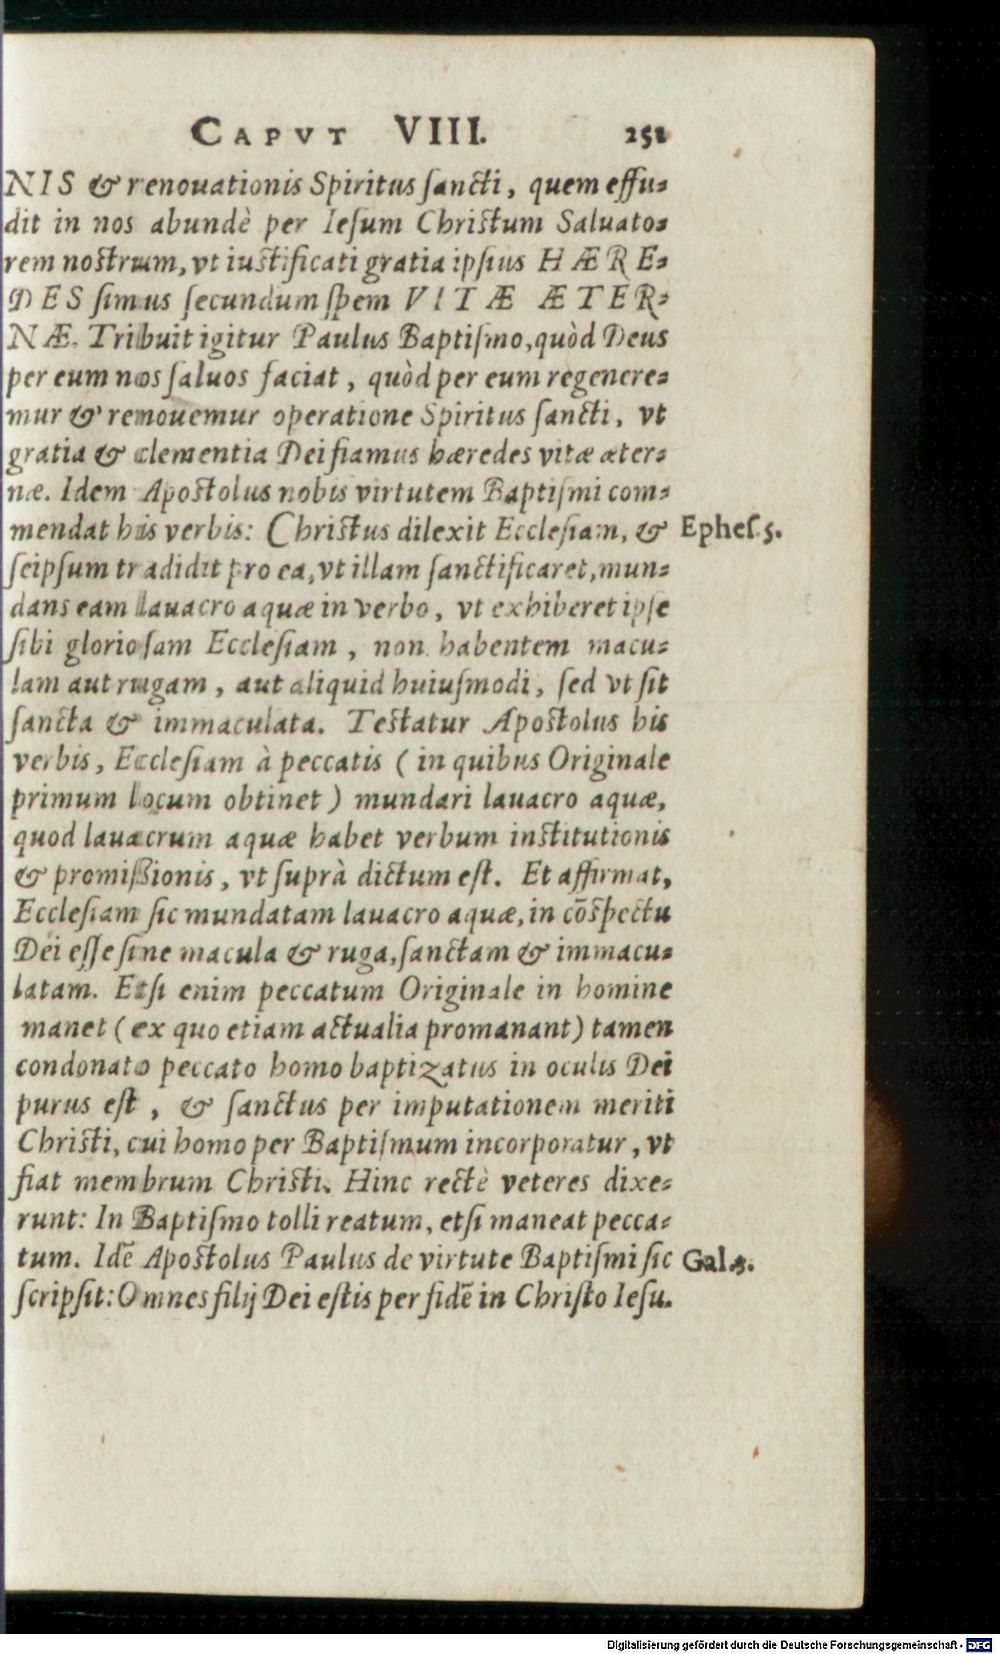 CAPVT VIII. 251
NIS & renouationis Spiritus ſancti, quem effu-
dit in nos abundè per Ieſum Chriſtum Saluato-
rem noſtrum, vt iuſtificati gratia ipſius HÆRE-
DES ſimus ſecundum ſpem VITÆ ÆTER-
NÆ. Tribuit igitur Paulus Baptiſmo, quòd Deus
per eum nos ſaluos faciat, quòd per eum regenere-
mur & remouemur operatione Spiritus ſancti, vt
gratia & clementia Dei fiamus hæredes vitæ æter-
næ. Idem Apoſtolus nobis virtutem Baptiſmi com-
mendat his verbis: Chriſtus dilexit Eccleſiam, & Epheſ. 5.
ſeipſum tradidit pro ea, vt illam ſanctificaret, mun-
dans eam lauacro aquæ in verbo, vt exhiberet ipſe
ſibi glorioſam Eccleſiam, non habentem macu-
lam aut rugam, aut aliquid huiuſmodi, ſed vt ſit
ſancta & immaculata. Teſtatur Apoſtolus his
verbis, Eccleſiam à peccatis (in quibus Originale
primum locum obtinet) mundari lauacro aquæ,
quod lauacrum aquæ habet verbum inſtitutionis
& promiſsionis, vt ſuprà dictum eſt. Et affirmat,
Eccleſiam ſic mundatam lauacro aquæ, in cōſpectu
Dei eſſe ſine macula & ruga, ſanctam & immacu-
latam. Etſi enim peccatum Originale in homine
manet (ex quo etiam actualia promanant) tamen
condonato peccato homo baptizatus in oculis Dei
purus eſt, & ſanctus per imputationem meriti
Chriſti, cui homo per Baptiſmum incorporatur, vt
fiat membrum Chriſti. Hinc rectè veteres dixe-
runt: In Baptiſmo tolli reatum, etſi maneat pecca-
tum. Idē Apoſtolus Paulus de virtute Baptiſmi ſic Gal. 3.
ſcripſit: Omnes filij Dei eſtis per fidē in Chriſto Ieſu.
Digitalisierung gefördert durch die Deutsche Forschungsgemeinschaft - DFG